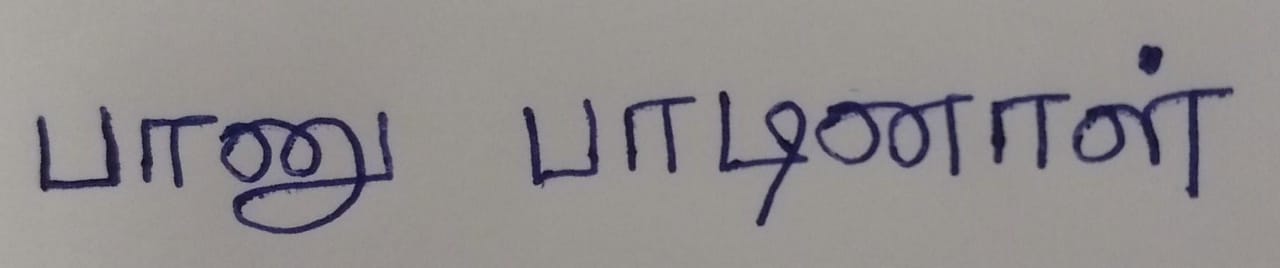 பானு பாடினாள்